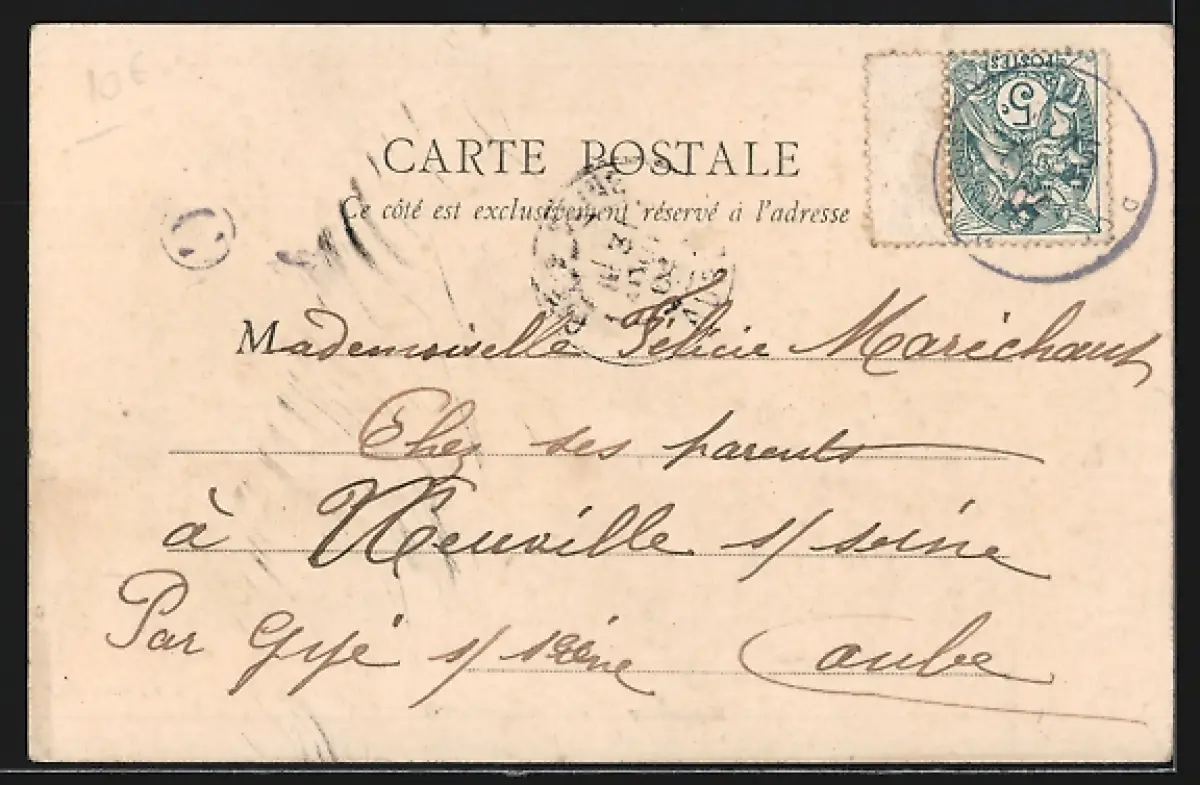 10€
CARTE POSTALE
Ce côté est exclusivement réservé à l'adresse
POSTES
5c
C
Mademoiselle Félicie Maréchaux
Chez ses parents
à Neuville s/ seine
Par Gyé s/ seine (aube